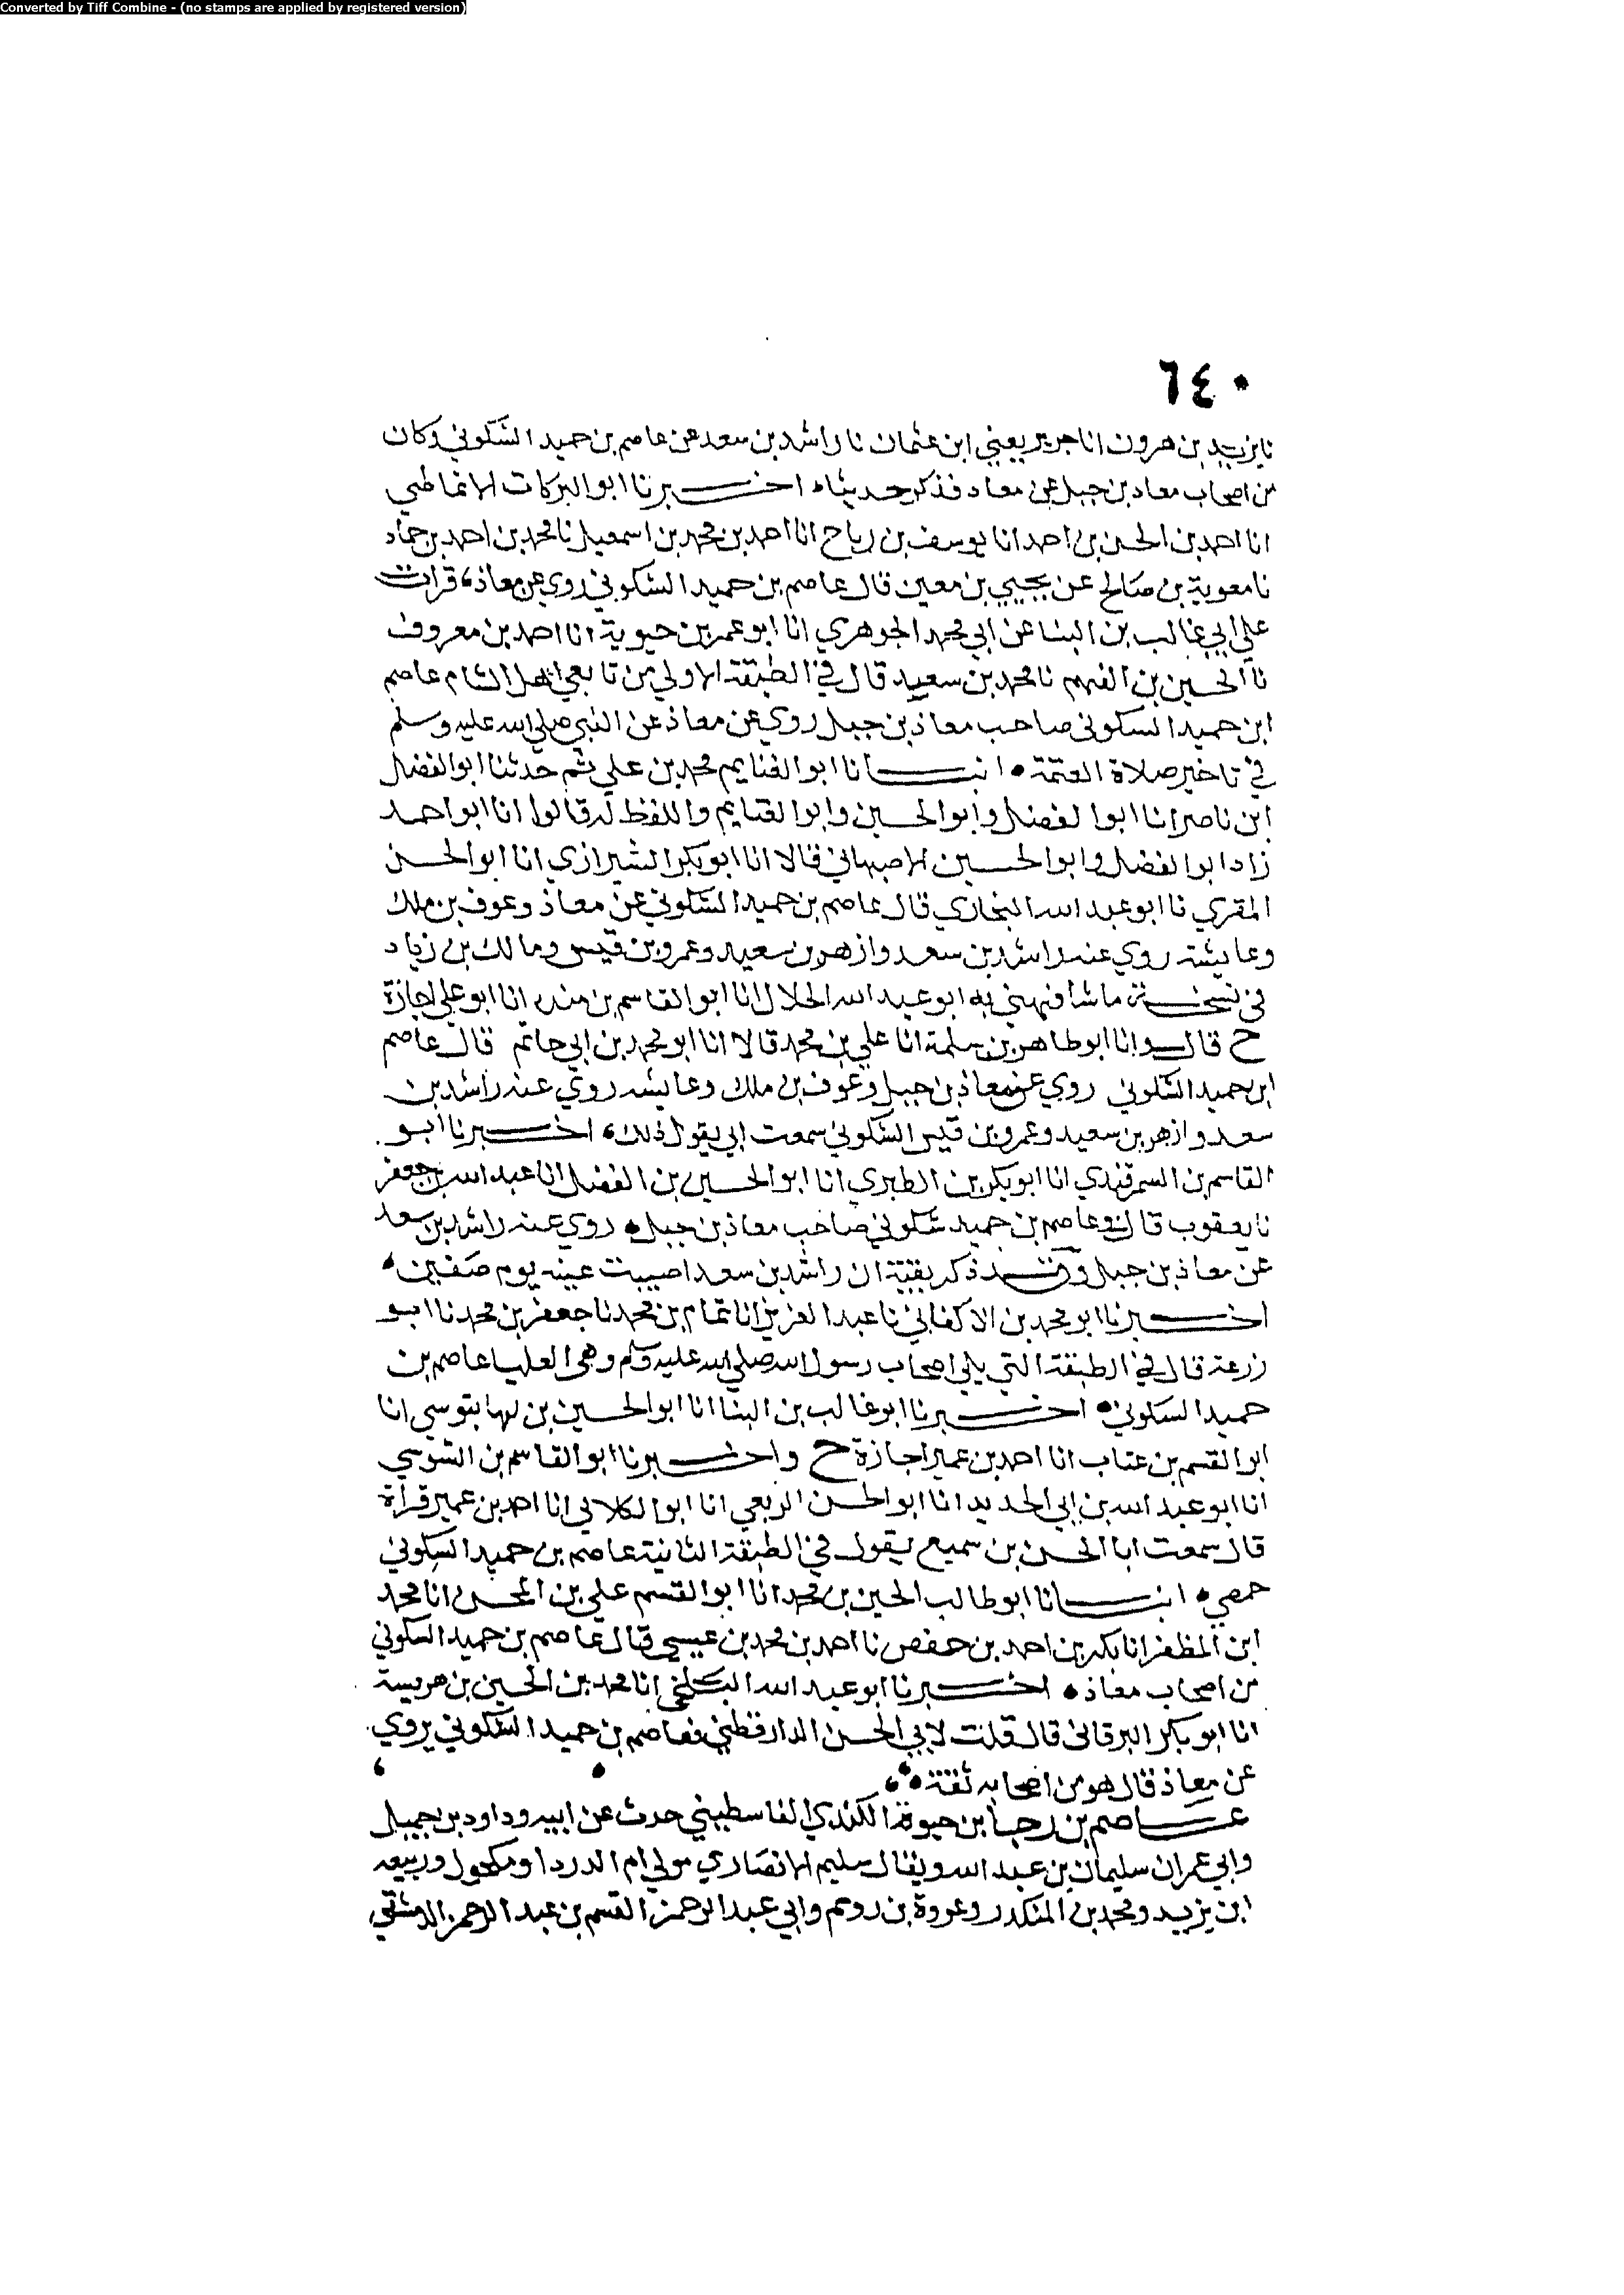 Converted by Tiff Combine - (no stamps are applied by registered version)
٦٤٠
نا يزيد بن هرون انا جرير يعني ابن عثمان نا راشد بن سعد عن عاصم بن حميد السكوني وكان
من اصحاب معاد بن جبل عن معاد فذكر حديثا، اخبرنا ابو البركات الانماطي
انا احمد بن الحسن بن احمد انا يوسف بن رباح انا احمد بن محمد بن اسمعيل نا محمد بن احمد بن حماد
نا معوية بن صالح عن يحيي بن معين قال عاصم بن حميد السكوني روي عن معاذ، قرات
علي ابي غالب بن البنا عن ابي محمد الجوهري انا ابو عمر بن حيوية انا احمد بن معروف
نا الحسين بن الفهم نا محمد بن سعد قال في الطبقة الاولي من تابعي اهل الشام عاصم
ابن حميد السكوني صاحب معاذ بن جبل روي عن معاذ عن النبي صلي الله عليه وسلم
في تاخير صلاة العتمة • انبانا ابو الغنايم محمد بن علي ثم حدثنا ابو الفضل
ابن ناصر انا ابو الفضل وابو الحسين وابو الغنايم واللفظ له قالوا انا ابو احمد
زاد ابو الفضل وابو الحسين الاصبهاني قالا انا ابو بكر الشيرازي انا ابو الحسن
المقري نا ابو عبد الله البخاري قال عاصم بن حميد السكوني عن معاذ وعوف بن ملك
وعايشة روي عنه راشد بن سعد وازهر بن سعيد وعمرو بن قيس ومالك بن زياد
في نسخة ما شافهني به ابو عبد الله الخلال انا ابو القاسم بن منده انا ابو علي اجازة
ح قال وانا ابو طاهر بن سلمة انا علي بن محمد قالا انا ابو محمد بن ابي حاتم قال عاصم
ابن حميد السكوني روي عن معاذ بن جبل وعوف بن ملك وعايشه روي عنه راشد بن
سعد وازهر بن سعيد وعمرو بن قيس السكوني سمعت ابي يقول ذلك، اخبرنا ابو
القاسم بن السمرقندي انا ابو بكر بن الطبري انا ابو الحسين بن الفضل انا عبد الله بن جعفر
نا يعقوب قال وعاصم بن حميد سكوني صاحب معاذ بن جبل • روي عنه راشد بن سعد
عن معاذ بن جبل وقد ذكر بقية ان راشد بن سعد اصيبت عينه يوم صفين،
اخبرنا ابو محمد بن الاكفاني نا عبد العزيز انا تمام بن محمد نا جعفر بن محمد نا ابو
زرعة قال في الطبقة التي يلي اصحاب رسول الله صلي الله عليه وسلم وهي العليا عاصم بن
حميد السكوني • اخبرنا ابو غالب بن البنا انا ابو الحسين بن انا
ابو القسم بن عتاب انا احمد بن عمير اجازة ح واخبرنا ابو القاسم بن السوسي
انا ابو عبد الله بن ابي الحديد انا ابو الحسن الربعي انا ابو الكلابي انا احمد بن عمير قراة
قال سمعت ابا الحسن بن سميع يقول في الطبقة الثانية عاصم بن حميد السكوني
حمصي • انبانا ابو طالب الحسين بن محمد انا ابو القسم علي بن المحسن انا محمد
ابن المظفر انا بكر بن احمد بن حفص نا احمد بن محمد بن عيسي قال عاصم بن حميد السكوني
من اصحاب معاذ • اخبرنا ابو عبد الله البلخي انا محمد بن الحسين بن هريسة
انا ابو بكر البرقاني قال قلت لابي الحسن الدارقطني فعاصم بن حميد السكوني يروي
عن معاذ قال هو من اصحابه ثقة •
عاصم بن رجا بن حيوة الكندي الفلسطيني حدث عن ابيه وداود بن جميل
وابي عمران سليمان بن عبد الله ويقال سليم الانصاري مولي ام الدردا ومكحول وربيعه
ابن يزيد ومحمد بن المنكدر وعروة بن رويم وابي عبد الرحمن القسم بن عبد الرحمن الدمشقي